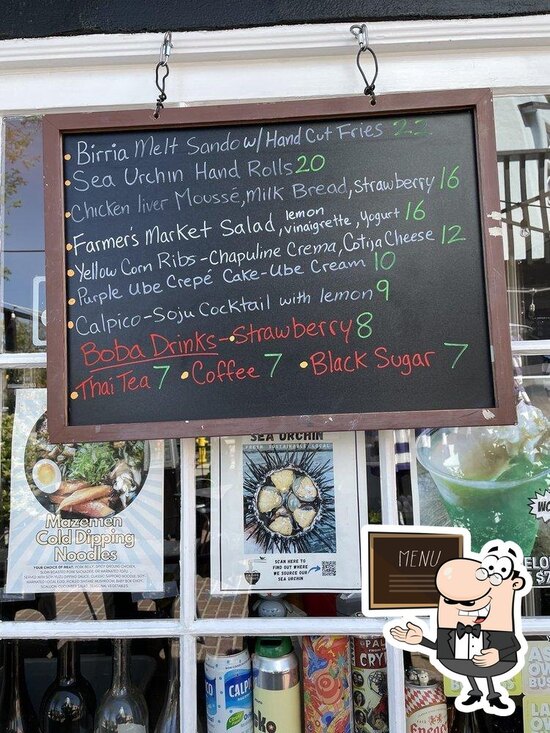 Birria Melt Sando w/ Hand Cut Fries 22
Sea Urchin Hand Rolls 20
Chicken liver Mousse, Milk Bread, Strawberry 16
Farmer's Market Salad, lemon vinaigrette, yogurt 16
Yellow Corn Ribs - Chapuline Crema, Cotija Cheese 12
Purple Ube Crepé Cake - Ube Cream 10
Calpico - Soju Cocktail with lemon 9
Boba Drinks - Strawberry 8
Thai Tea 7 Coffee 7 Black Sugar 7
SEA URCHIN
FRESH SUSTAINABLE LOCAL
Mazemen
Cold Dipping
Noodles
SCAN HERE TO
FIND OUT WHERE
WE SOURCE OUR
SEA URCHIN
MENU
CALPI